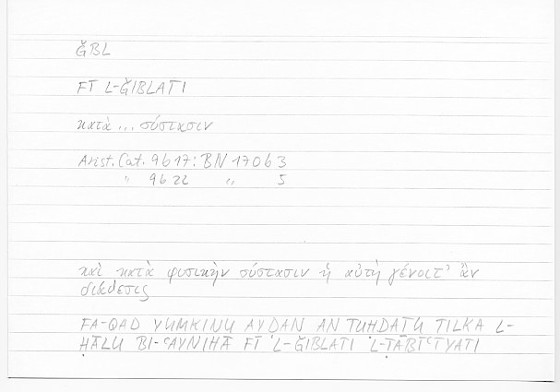 ǦBL
FĪ L-ǦIBLATI
κατὰ ... σύστασιν
Arist. Cat. 9b17: BN 170b3
" 9b22 " 5
καὶ κατὰ φυσικὴν σύστασιν ἡ αὐτὴ γένοιτ' ἂν
διάθεσις
FA-QAD YUMKINU AYḌAN AN TUḤDAṮU TILKA L-
ḤĀLU BI-ʿAYNIHĀ FĪ 'L-ǦIBLATI 'L-ṬABĪʿĪYATI